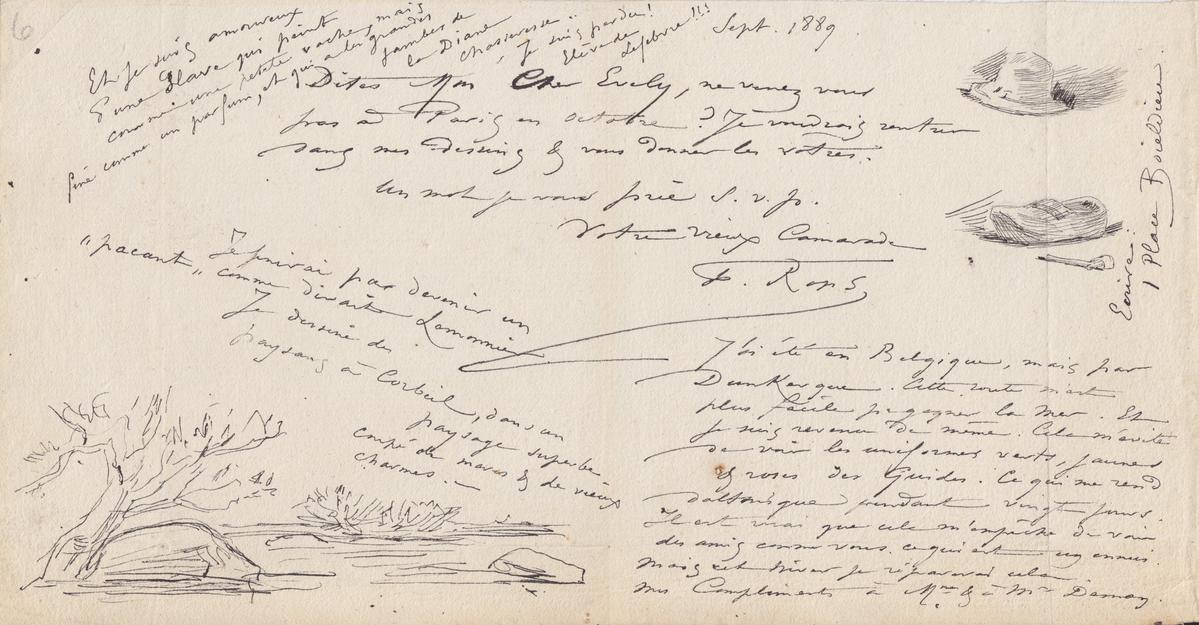 6
Sept. 1889
Dites Mon Cher Evely, ne venez vous
pas à Paris en octobre ? Je voudrais rentrer
dans mes dessins & vous donner les vôtres.
Un mot je vous prie S. v. p.
Votre vieux Camarade
F. Rops
Et je suis amoureux
d'une Slave qui peint
comme une petite vache, mais
qui a les grandes jambes de
la Diane chasseresse..
comme un parfum, et
fine comme
Je suis perdu!
Elève de
Lefebvre!!!
Ecrire:
1 Place Boieldieu.
Je finirai par devenir un
"pacant" comme dirait Lemonnier
Je dessine des
paysans à Corbeil, dans un
paysage superbe
coupé de mares & de vieux
charmes. —
J'ai été en Belgique, mais par
Dunkerque. Cette route m'est
plus facile pr gagner la mer. Et
je suis revenu de même. Cela m'évite
de voir les uniformes verts, jaunes
& roses des Guides. Ce qui me rend
daltonique pendant vingt jours.
Il est vrai que cela m'empêche de voir
des amis comme vous. ce qui est un ennui.
mais cet hiver je réparerai cela
mes Compliments à Mme & à Mr